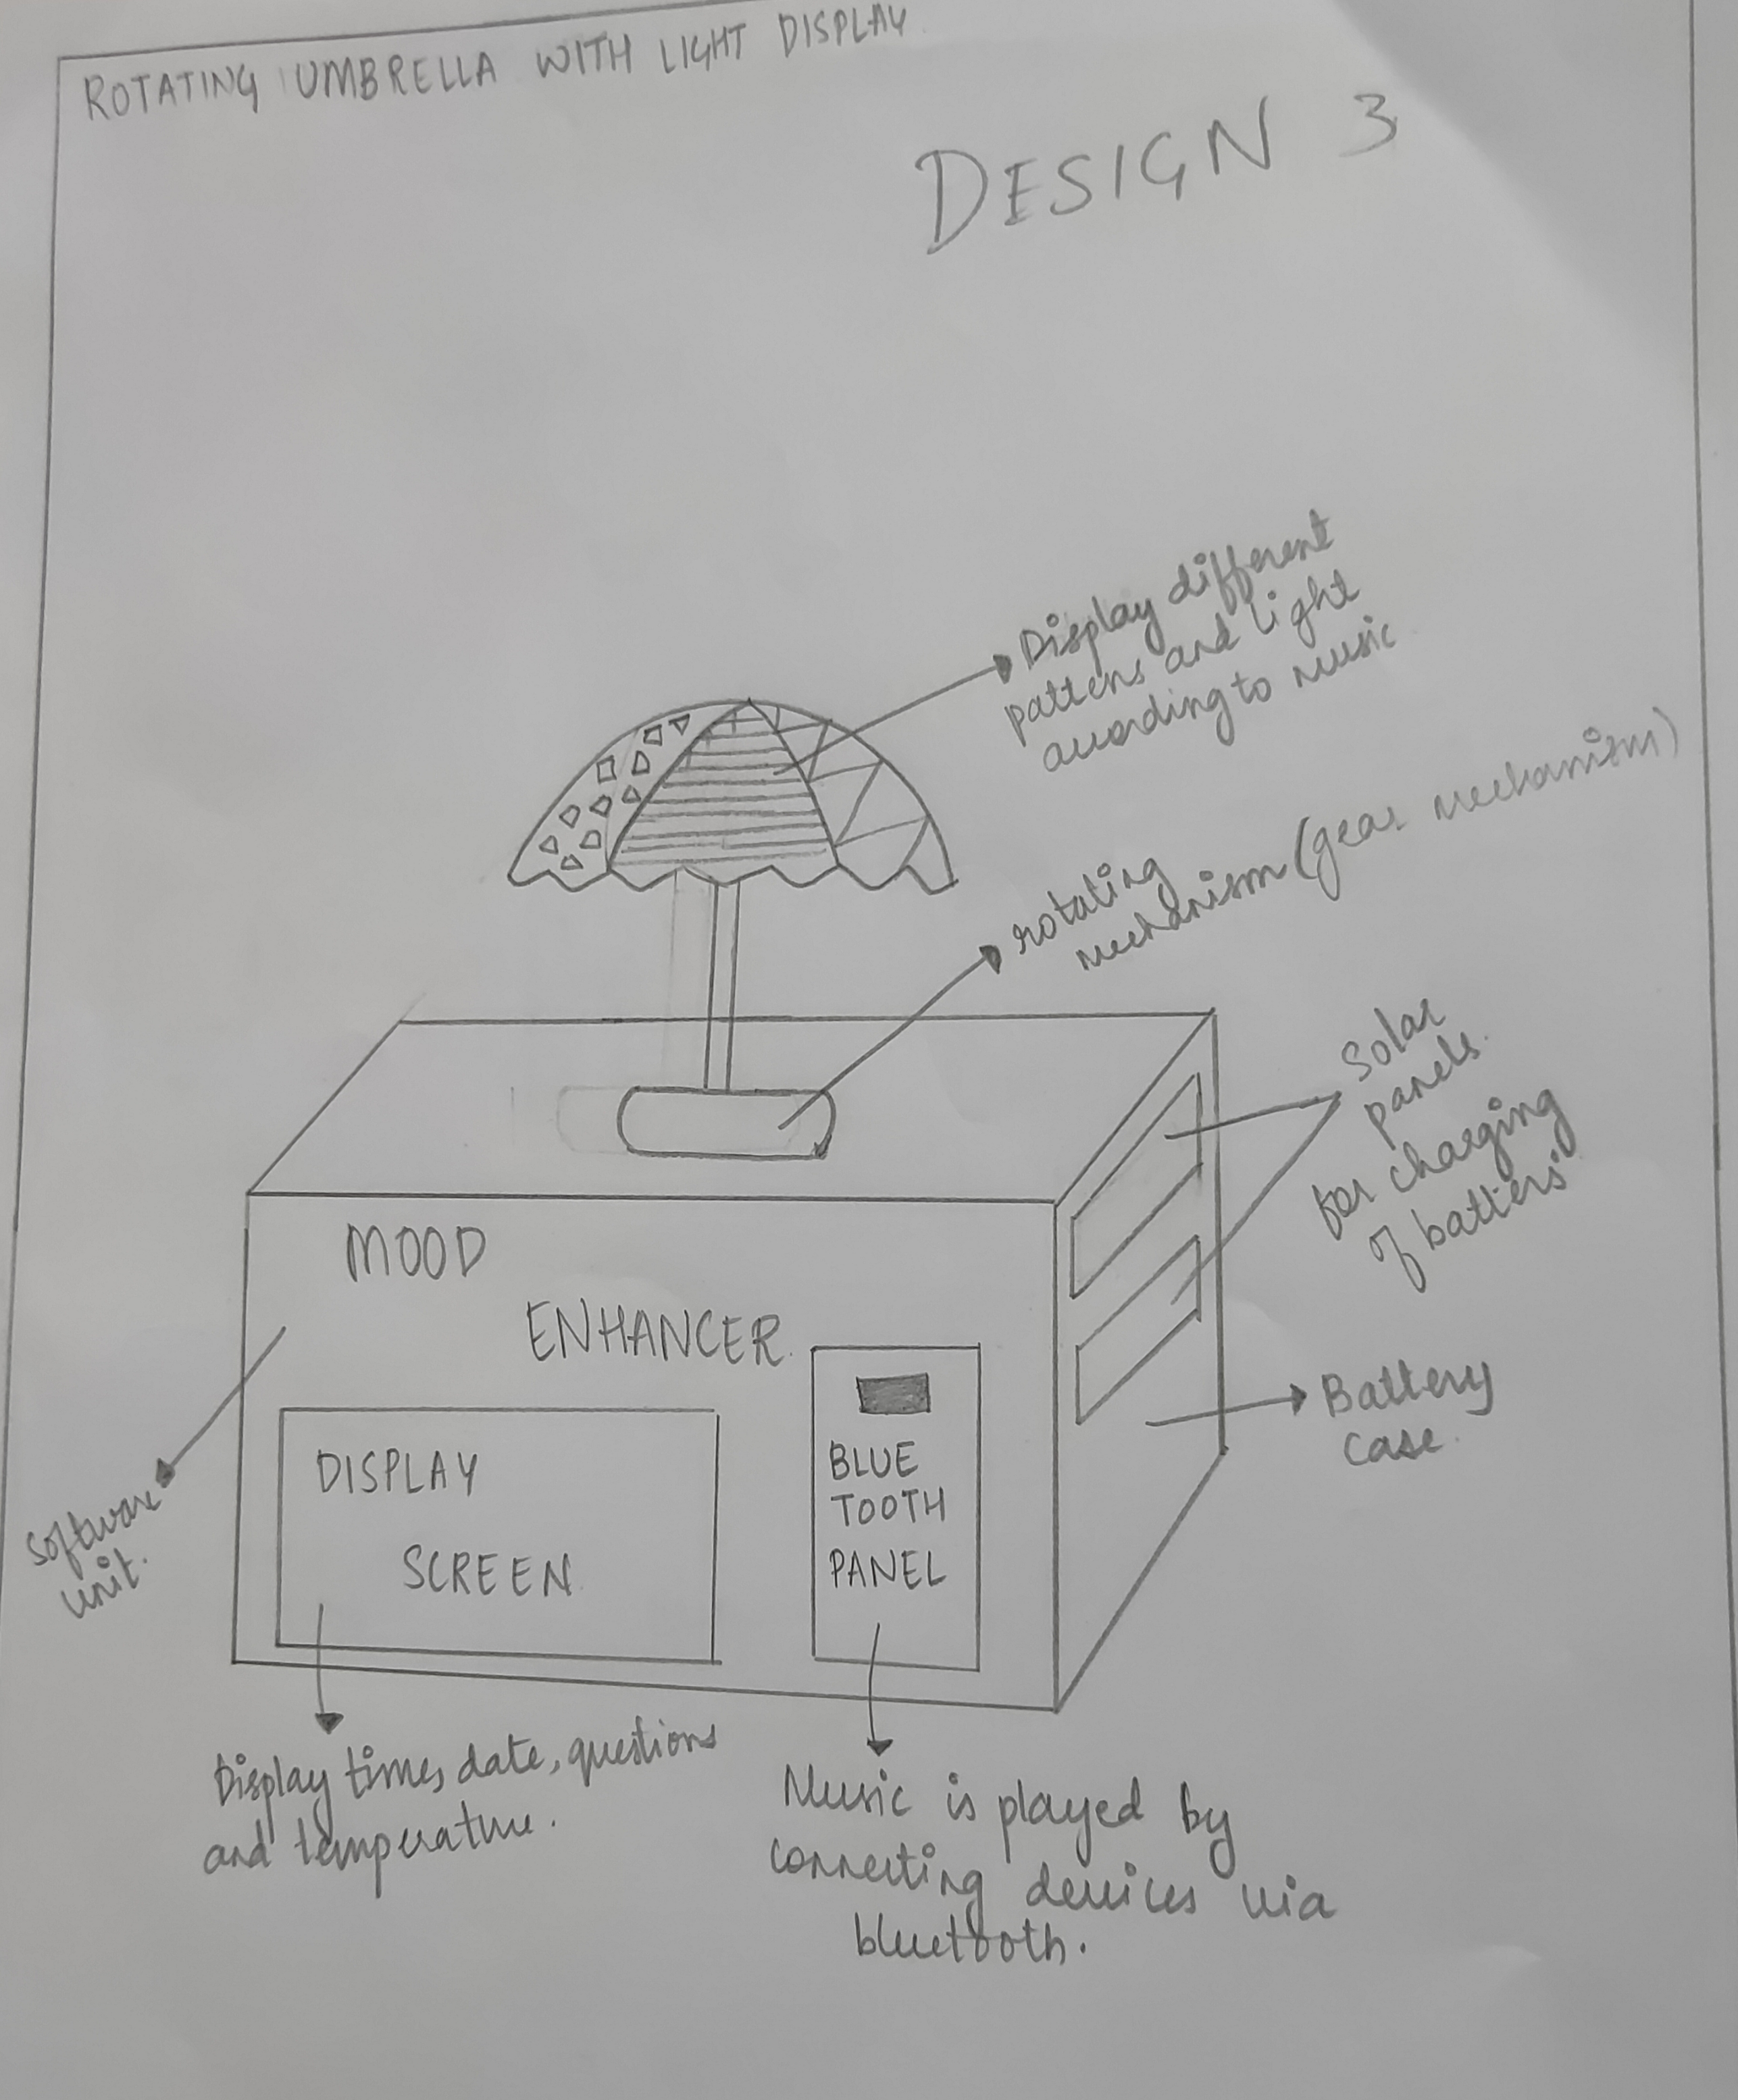 ROTATING UMBRELLA WITH LIGHT DISPLAY
DESIGN 3
Display different
pattens and light
according to music
rotating
mechanism (gear mechanism)
Solar
panels.
for charging
of batters
MOOD
ENHANCER.
Battery
case.
DISPLAY
SCREEN
BLUE
TOOTH
PANEL
Software
unit.
Display times, date, questions
and temperature.
Music is played by
connecting devices via
bluetooth.